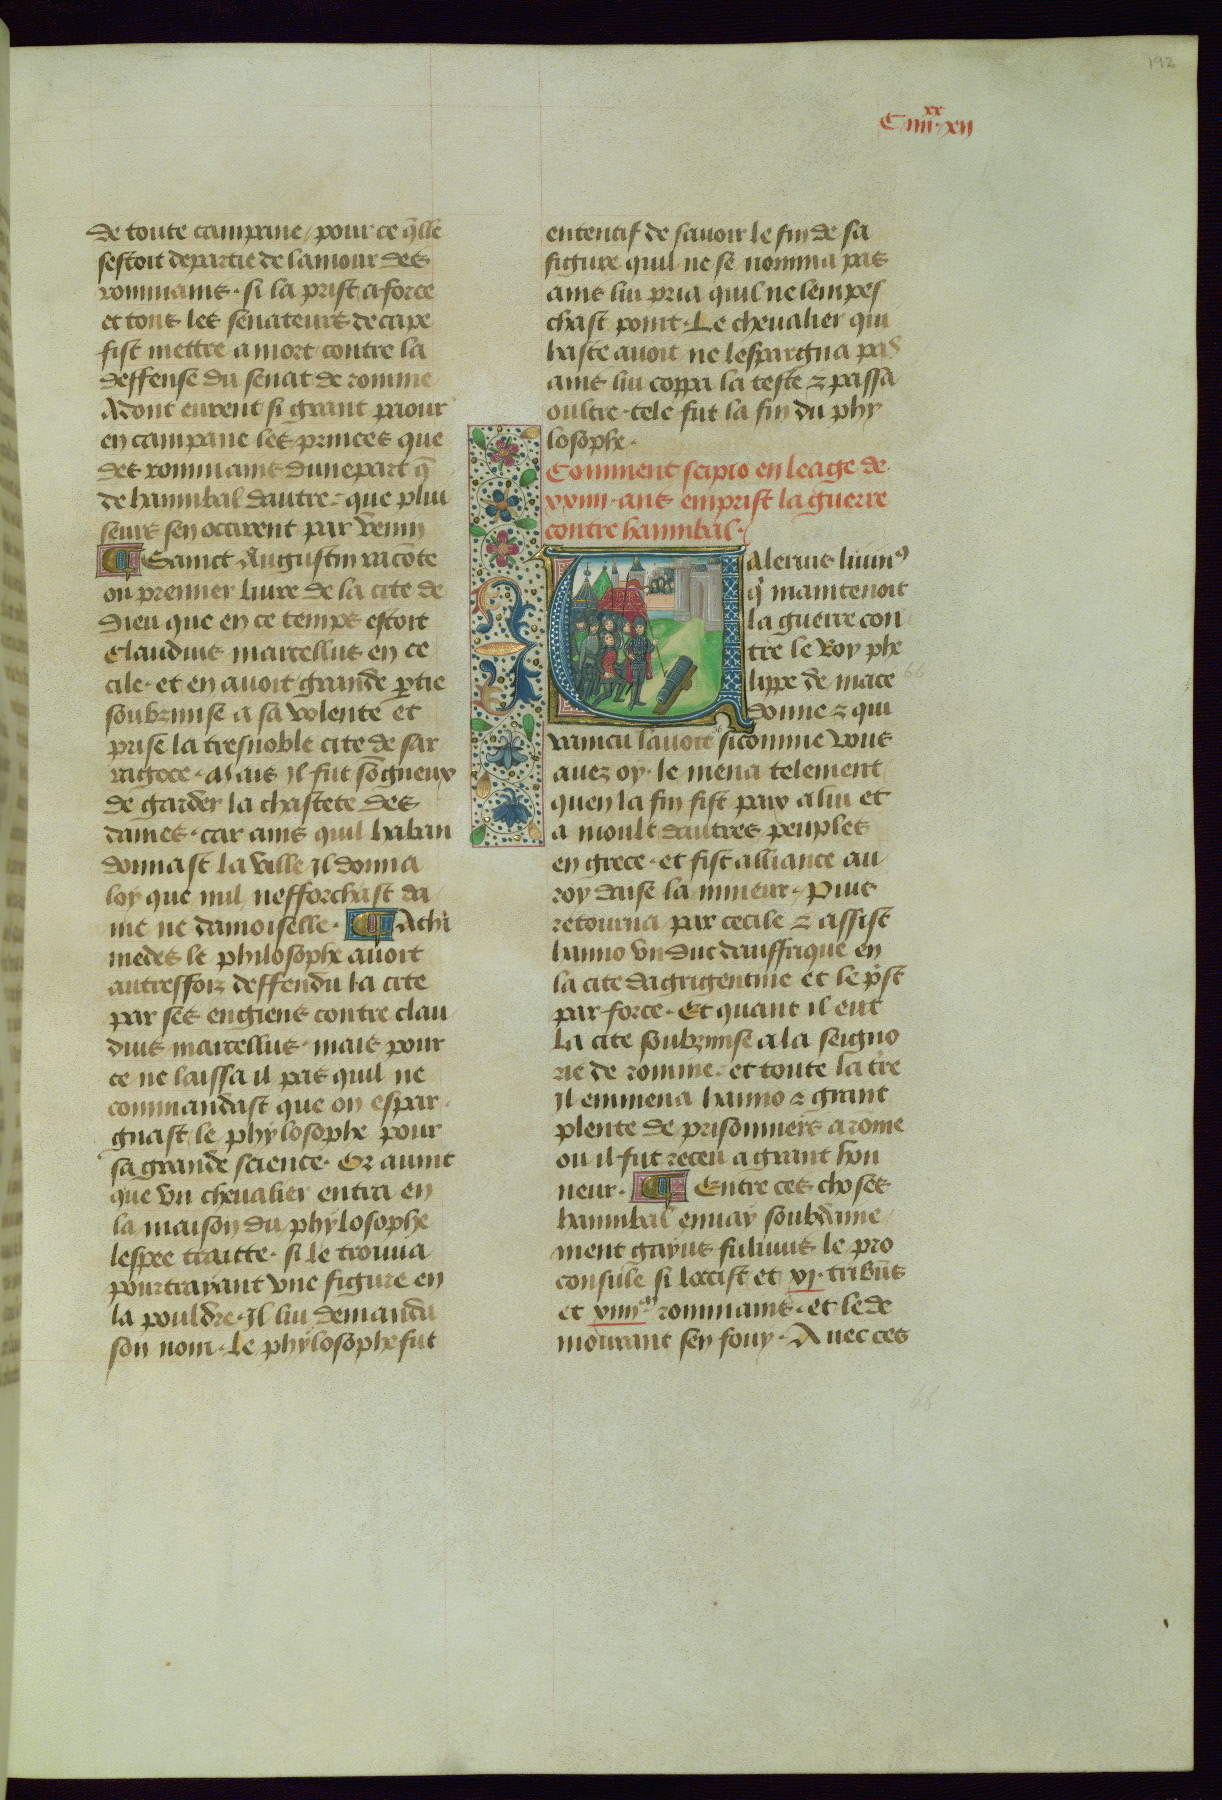 192
C iiii xx xii
de toute campaine / pour ce q̄lle
sestoit departie de lamour des
rommains · si la prist a force
et tous les senateurs de cape
fist mettre a mort contre la
deffense du senat de romme
Adont eurent si grant paour
en campane les princes que
des rommains dune part q̄
de hannibal dautre · que plui
seurs sen occirent par venin
Sainct Augustin racōte
ou premier livre de la cite de
dieu que en ce temps estoit
Claudius marcellus en ce
cile · et en avoit grande ꝑtie
soubzmise a sa volente et
prise la tresnoble cite de sar
ragoce · Mais il fut sōgneux
de garder la chastete des
dames · car ains quil haban
donnast la ville il donna
loy que nul nefforchast da
me ne damoiselle · Achi
medes le philosophe avoit
autreffoiz deffendu la cite
par ses engiens contre clau
dius marcellus · mais pour
ce ne laissa il pas quil ne
commandast que on espar
gnast le phylosophe pour
sa grande science · Or avint
que vn chevalier entra en
la maison du phylosophe
lespee traitte · si le trouva
pourtrayant vne figure en
la pouldre · Il lui demanda
son nom · Le phylosophe fut
ententif de savoir le fin de sa
figure quil ne se nomma pas
ains lui pria quil ne lempes
chast point · Le chevalier qui
haste avoit ne lespargna pas
ains lui coppa la teste ⁊ passa
oultre · tele fut la fin du phy
losophe ·
Comment scipio en leage de
xxiiii · ans emprist la guerre
contre hannibal ·
Valerius livinꝰ
q̇ maintenoit
la guerre con
tre le Roy phe
lippe de mace
donne ⁊ qui
vaincu lavoit sicomme vous
avez oy · le mena telement
quen la fin fist paix a lui et
a moult dautres peuples
en grece · et fist alliance au
roy daise la mineur · Puis
retourna par cecile ⁊ assist
hanno vn duc dauffrique en
la cite dagrigentine et le p̄st
par force · Et quant il eut
la cite soubzmise a la seigno
rie de romme · et toute la tr̄e
Il emmena hanno ⁊ grant
plente de prisonniers a rōme
ou il fut receu a grant hon
neur · Entre ces choses
hannibal envay soubdaine
ment gayus fulvius le pro
consule si loccist et xi · tribūs
et xviii m rommains · et le de
mourant sen fouy · Avec ces